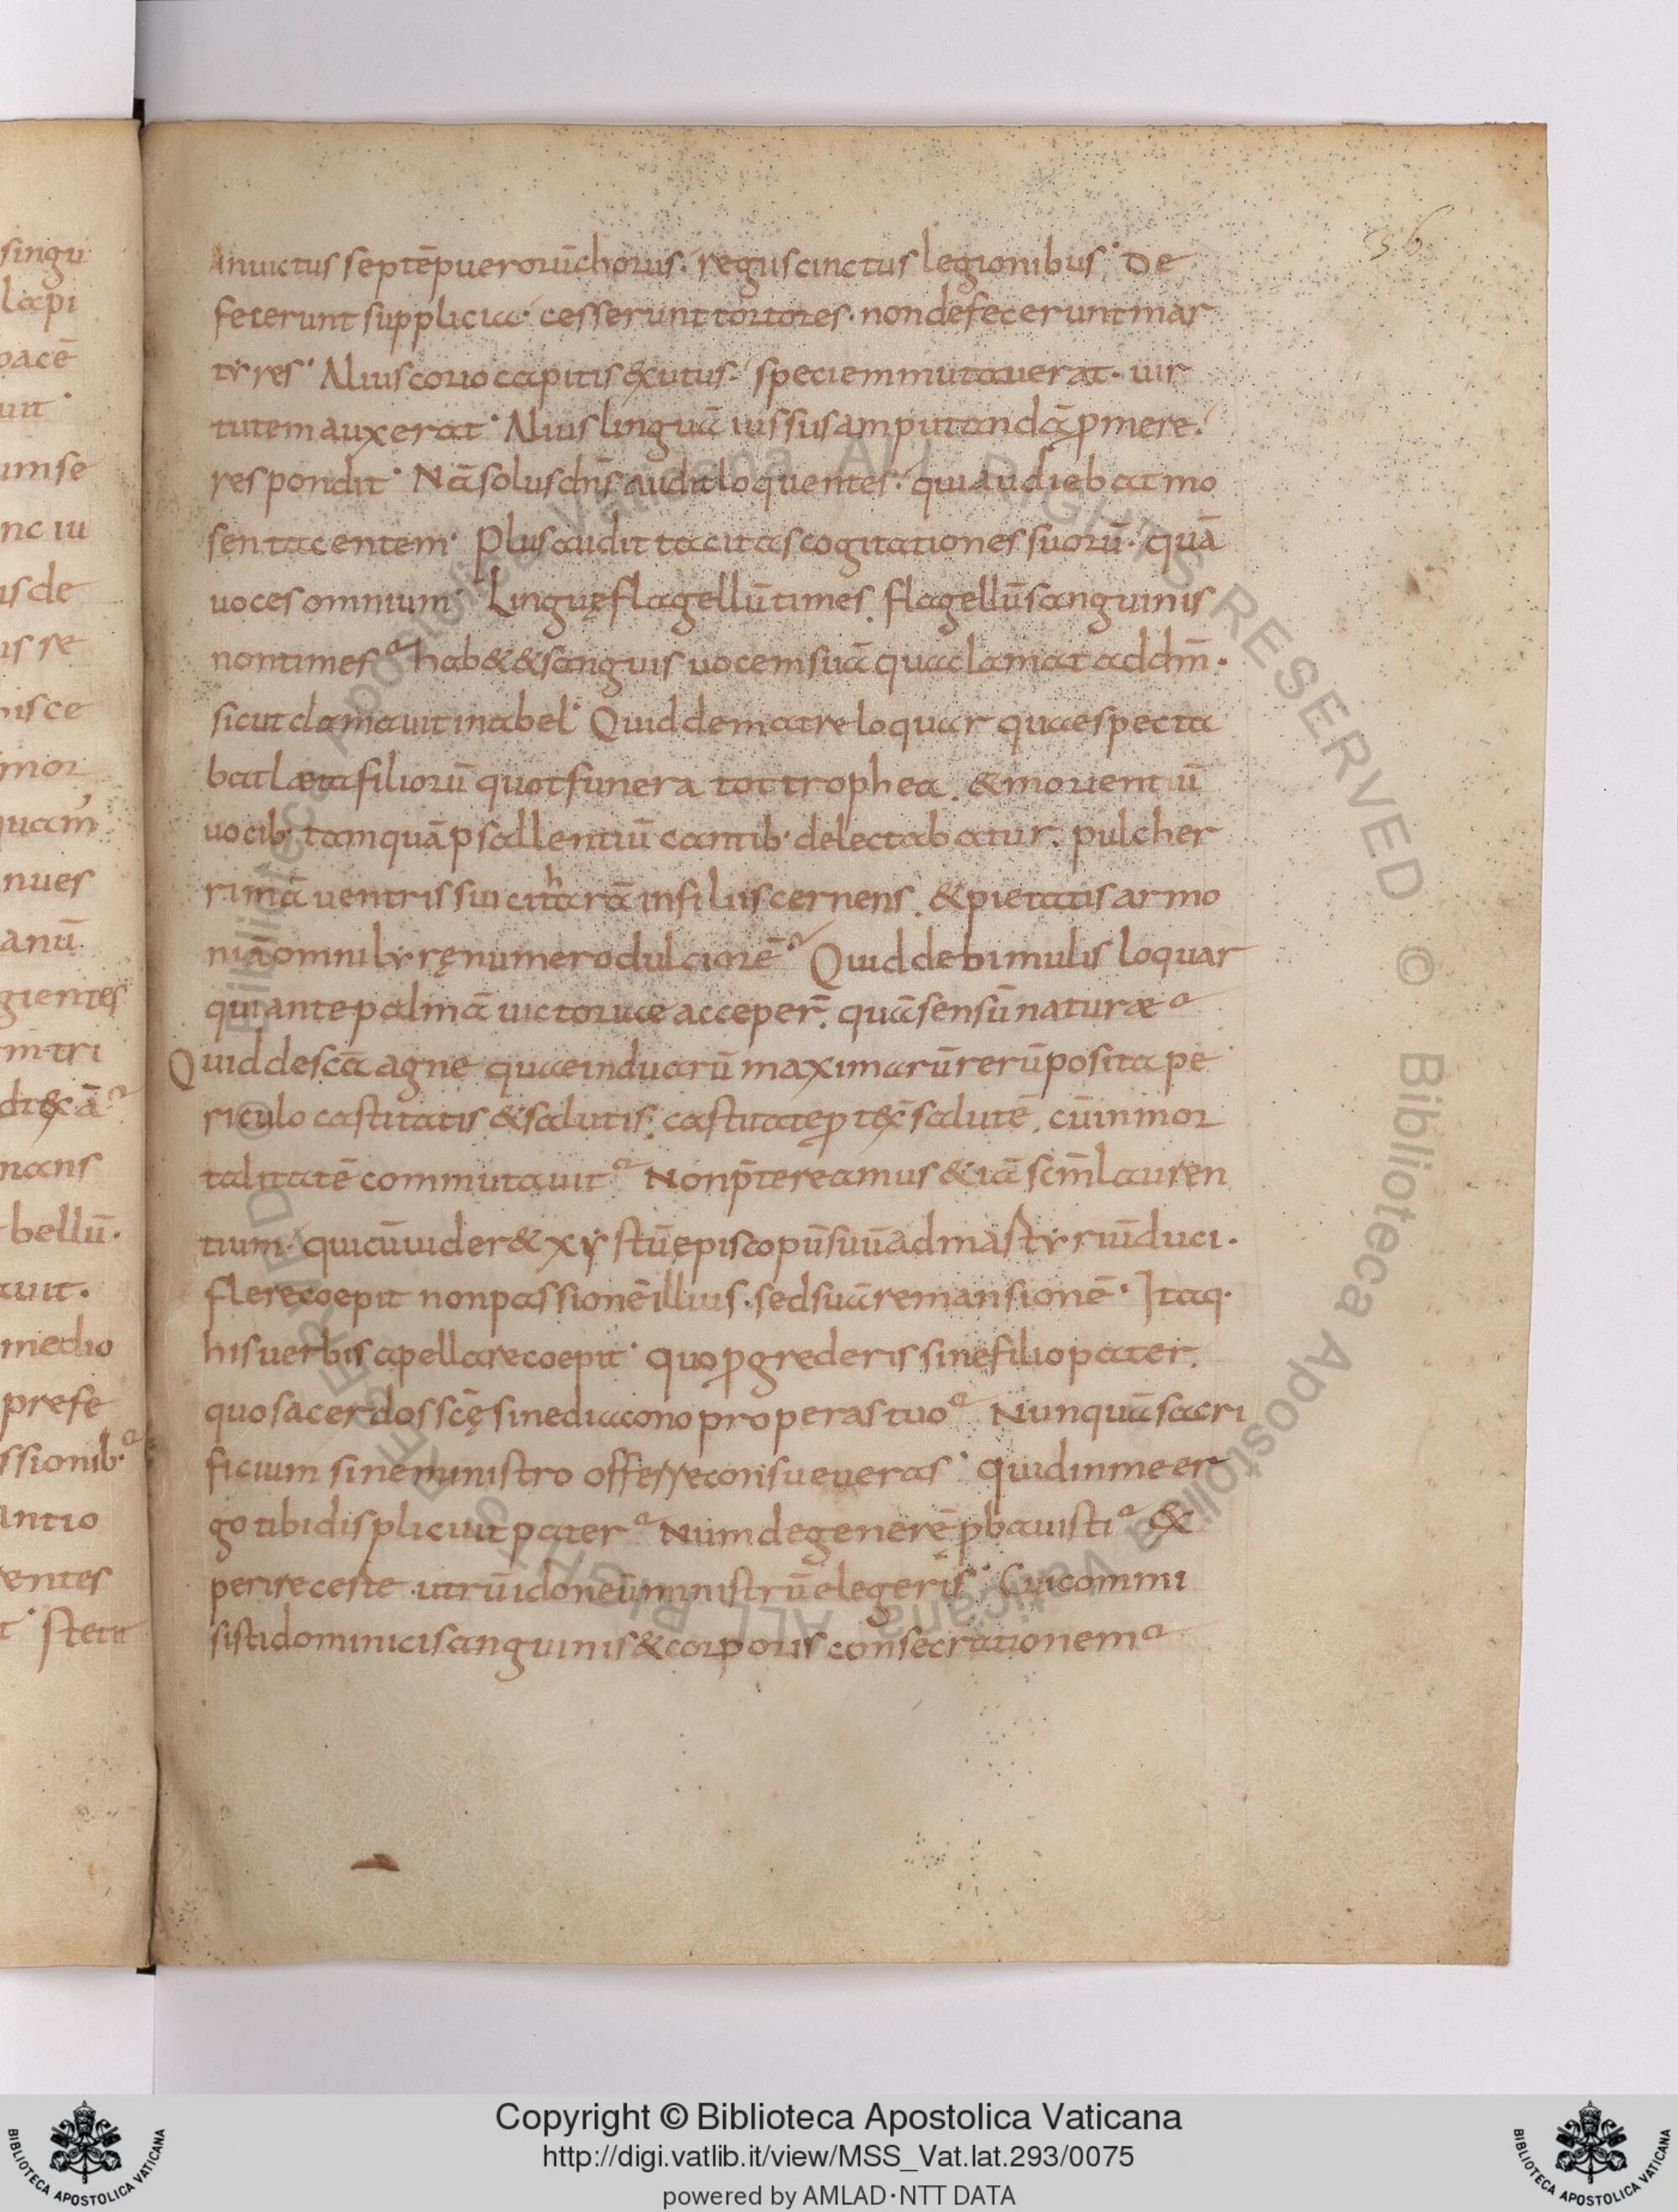 singu
lapi
pacē
uit
umse
nc iu
us de
us se
nisce
mor
quam
nues
anū
gientes
m tri
dixā
mans
bellū.
auit.
medio
prefe
ssionib.
antio
entes
t. stetit
36
Inuictus septē puerorū chorus. regiis cinctus legionibus. De
fecerunt supplicia. cesserunt tortores. non defecerunt mar
tyres. Alius corio capitis exutus. speciem mutauerat. uir
tutem auxerat. Alius linguā iussus amputandā promere.
respondit. Nā solus dn̄s audit loquentes. qui audiebat mo
sen tacentem. Plus audit tacitas cogitationes suorū. quā
uoces omnium. Linguę flagellū times. flagellū sanguinis
non times? hab& & sanguis uocem suā qua clamat ad dm̄.
sicut clamauit in abel. Quid de matre loquar quae specta
bat laeta filiorū quot funera tot trophea. & morientiū
uocib. tamquā psallentiū cantib. delectabatur. pulcher
rimā uentris sui citharā in filiis cernens. & pietatis armo
niā omni lyrę numero dulciorē? Quid de bimulis loquar
qui ante palmā uictoriae acceper̄. quā sensū naturae?
Quid de scā agne quae in duarū maximarū rerū posita pe
riculo castitatis & salutis. castitatē ptex̄ salutē. cū inmor
talitatē commutauit? Non p̄tereamus & iā scm̄ lauren
tium. qui cū uider& xystū episcopū suū ad martyriū duci.
flere coepit non passionē illius. sed suā remansionē. Itaq.
his uerbis apellare coepit. quo progrederis sine filio pater.
quo sacerdos scę̄ sine diacono properas tuo? Nunquā sacri
ficium sine ministro offerre consueueras. quid in me er
go tibi displicuit pater? Num degenerē pbauisti? &
perire certe utrū idoneū ministrū elegeris. Cui commi
sisti dominici sanguinis & corporis consecrationem?
Copyright © Biblioteca Apostolica Vaticana
http://digi.vatlib.it/view/MSS_Vat.lat.293/0075
powered by AMLAD·NTT DATA
BIBLIOTECA APOSTOLICA VATICANA
BIBLIOTECA APOSTOLICA VATICANA